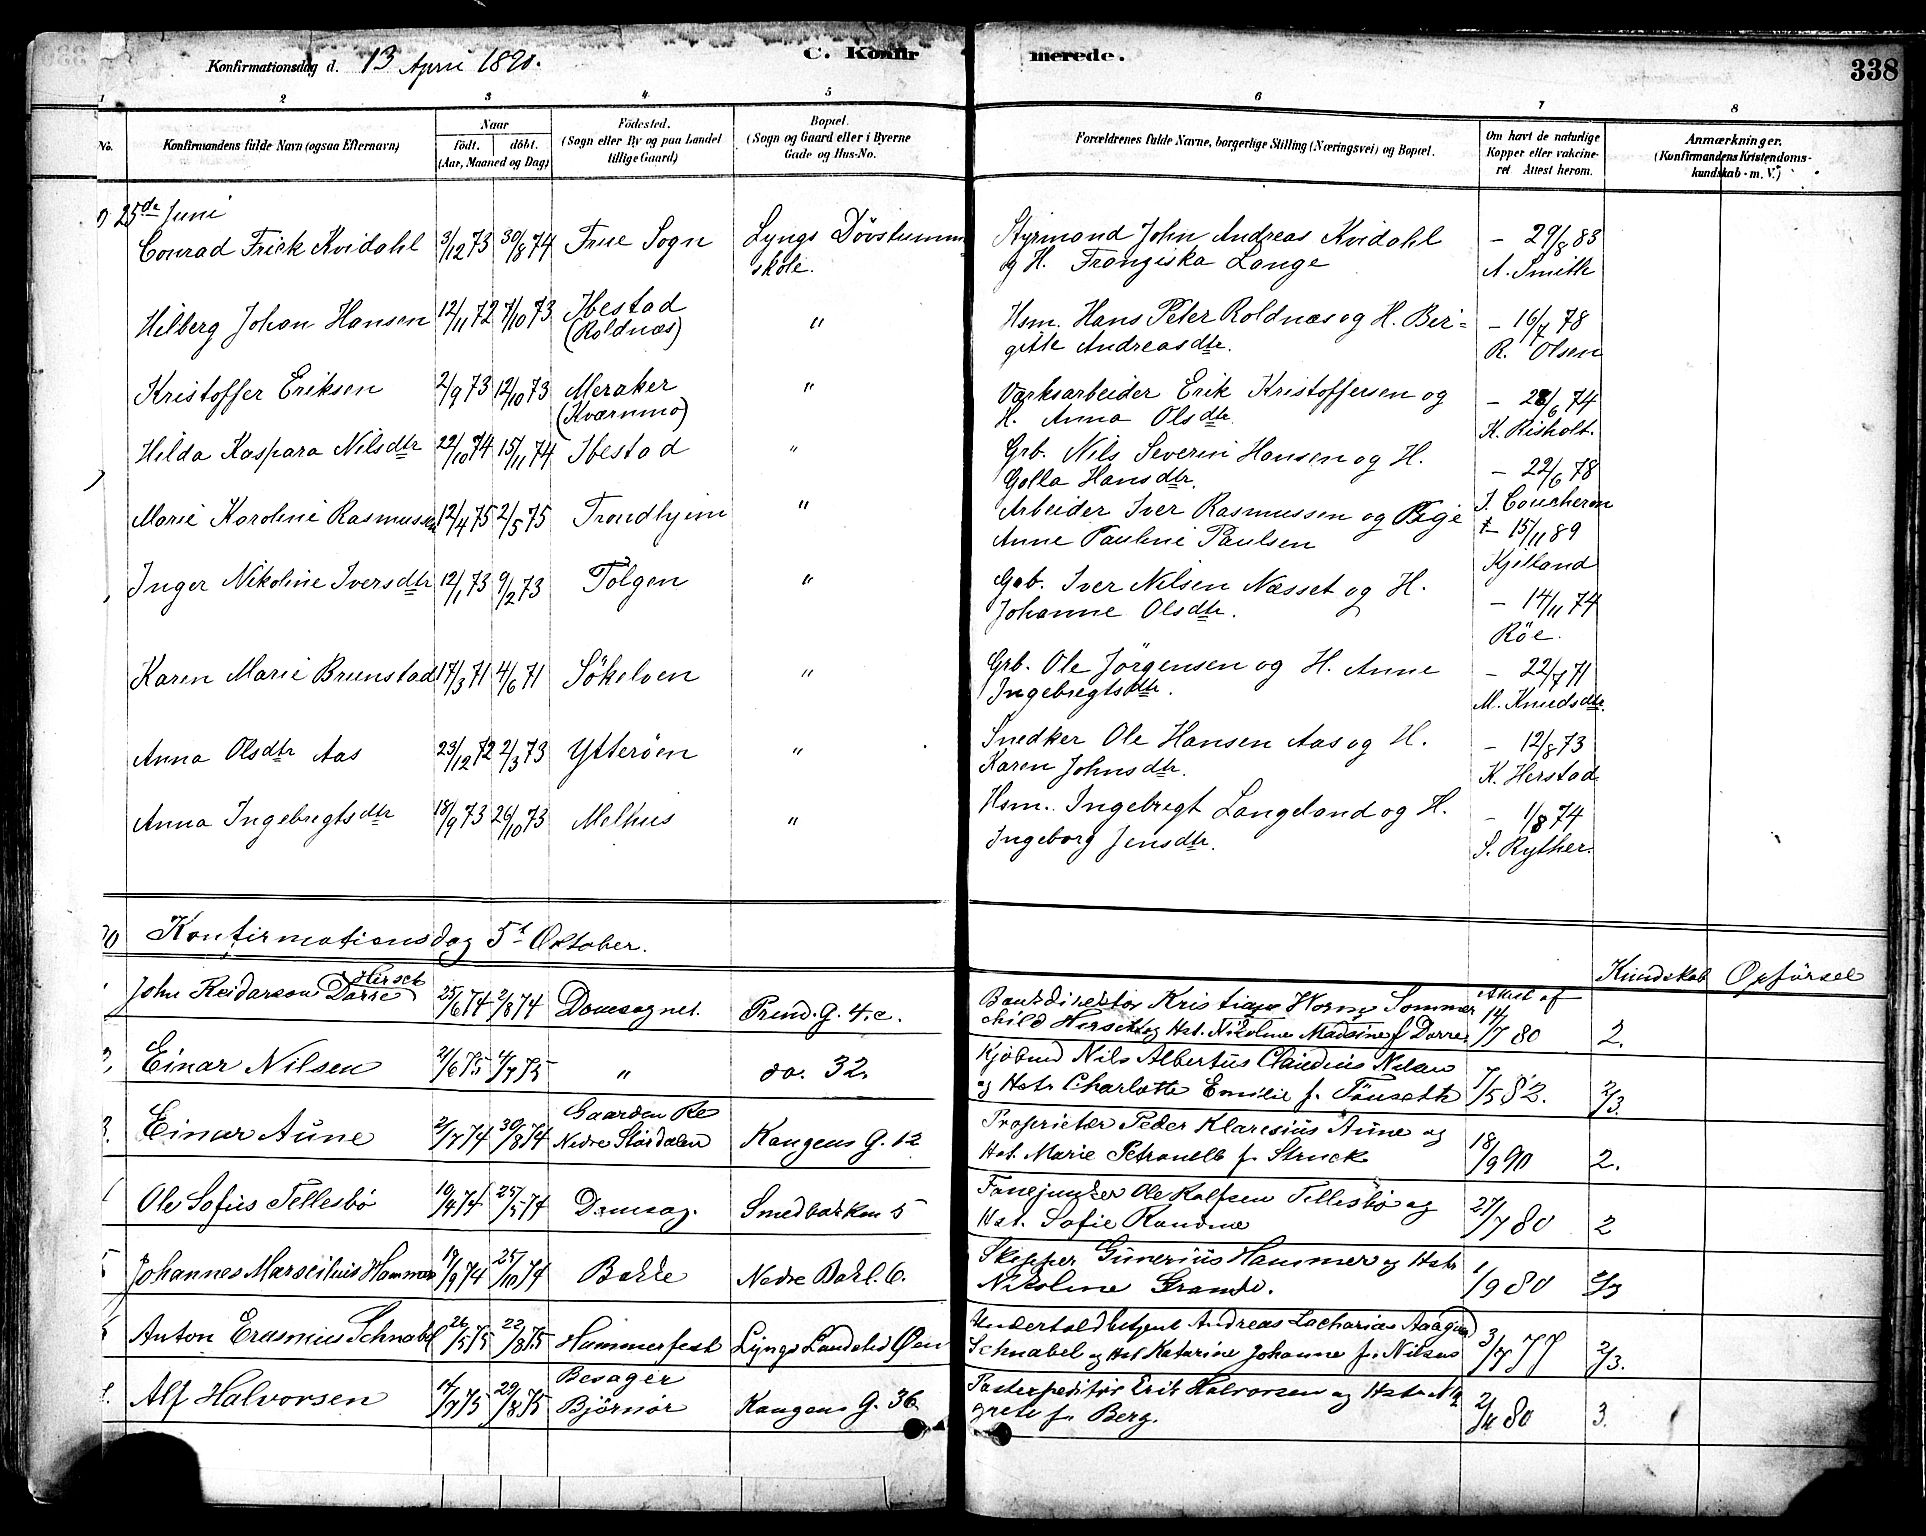 Konfirmationsdag d. 13 April 1890.
C. Konfirmerede.
338
1 2 3 4 5 6 7 8
No.
Konfirmandens fulde Navn (ogsaa Efternavn)
Naar
født. døbt.
(Aar, Maaned og Dag)
Fødested.
(Sogn eller By og paa Landet
tillige Gaard)
Bopæl.
(Sogn og Gaard eller i Byerne
Gade og Hus-No.
Forældrenes fulde Navne, borgerlige Stilling (Næringsvei) og Bopæl.
Om havt de naturlige
Kopper eller vakcine-
ret Attest herom.
Anmærkninger.
(Konfirmandens Kristendoms-
kundskab m. V.)
25de Juni
Conrad Frick Kvidahl 3/12 73 30/8 74 Frue Sogn Lyngs Døvstumme
skole.
Styrmand John Andreas Kvidahl
og H. Frangiska Lange
– 29/8 83
A. Smith
Hilberg Johan Hansen 12/11 72 7/10 73 Ibestad
(Roldnæs)
"
Hsm. Hans Peter Roldnæs og H. Ber-
gitte Andreasdtr.
– 16/7 78
R. Olsen
Kristoffer Eriksen 2/9 73 12/10 73 Meraker
(Kværnmo)
"
Værksarbeider Erik Kristoffersen og
H. Anna Olsdtr.
– 28/6 74
K. Risholt.
Hilda Kaspara Nilsdtr 22/10 74 15/11 74 Ibestad "
Grb. Nils Severin Hansen og H.
Golla Hansdtr.
– 22/6 78
J. Coucheron
Marie Karoline Rasmussen 12/4 75 2/5 75 Trondhjem "
Arbeider Iver Rasmussen og Pige
Anne Pauline Paulsen
– 15/11 89
Kjelland
Inger Nikoline Iversdtr 12/1 73 9/2 73 Tolgen "
Gab. Iver Nilsen Næsset og H.
Johanne Olsdtr.
– 14/11 74
Röe.
Karen Marie Brunstad 17/3 71 4/6 71 Sökelven "
Grb. Ole Jörgensen og H. Anne
Ingebregtsdtr.
– 22/7 71
M. Knudsdtr.
Anna Olsdtr Aas 23/12 72 2/3 73 Ytterøen "
Snedker Ole Hansen Aas og H.
Karen Johnsdtr.
– 12/8 73
K. Herstad
Anna Ingebregtsdtr 18/9 73 26/10 73 Melhus "
Hsm. Ingebregt Langeland og H.
Ingeborg Jensdtr.
– 1/8 74
S. Ryther.
Konfirmationsdag 5t October.
Kundskab Opførsel
John Reidarson Dorre Hirsch 25/6 74 2/8 74 Domesognet. Prind. G. 4. c.
Bankdirektör Kristian Horne Sommer
child Hirsch og Hst. Nikoline Madsine f. Dorre.
Attest af
14/7 80 2.
Einar Nilsen 2/6 75 4/7 75 " do. 32.
Kjøbmd Nils Albertus Claudius Nilsen
og Hstr Charlotte Emilie f. Fånseth
7/5 82. 2/3.
3. Einar Aune 2/7 74 30/8 74 Gaarden Re
Nedre Størdalen
Kongens G. 12
Proprietær Peder Klaresius Aune og
Hst. Marie Petronelle f. Struck
18/9 90 2.
Ole Sofus Tellesbø 19/4 74 25/5 74 Domesog. Smedbakken 5
Fanejunker Ole Rolfsen Tellesbø og
Hst. Sofie Randine
27/7 80 2
5 Johannes Marselius Hammer 19/9 74 25/10 74 Bakke Nedre Bakl. 6.
Skipper Gunerius Hammer og Hstr
Nikoline Grande.
1/9 80 2/3
Anton Erasmus Schnabel 26/5 75 22/8 75 Hammerfest Lyngs Landsted Øen
Undertoldbetjent Andreas Zacharias Aagaard
Schnabel og Hst Katarine Johanne f. Nilsen
3/7 77 2/3.
Alf Halvorsen 14/7 75 29/8 75 Besager
Bjørnør
Kongens G. 36.
Postexpeditør Erik Halvorsen og Hstr
grete f. Berg.
80 3.